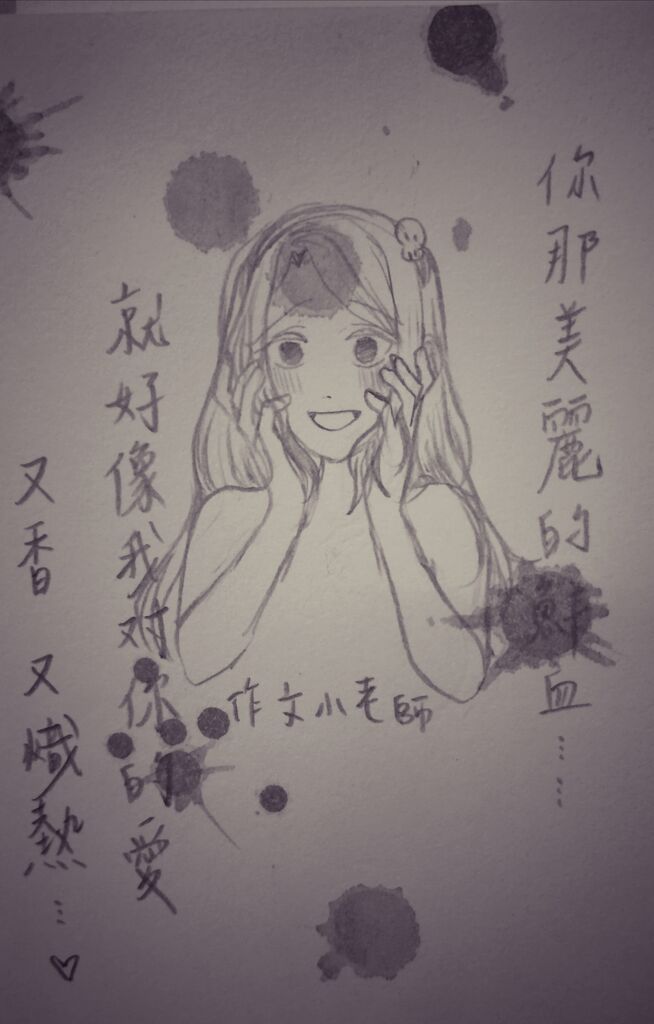 你那美麗的鮮血……
就好像我对你的愛
又香 又熾熱…♡
作文小老師